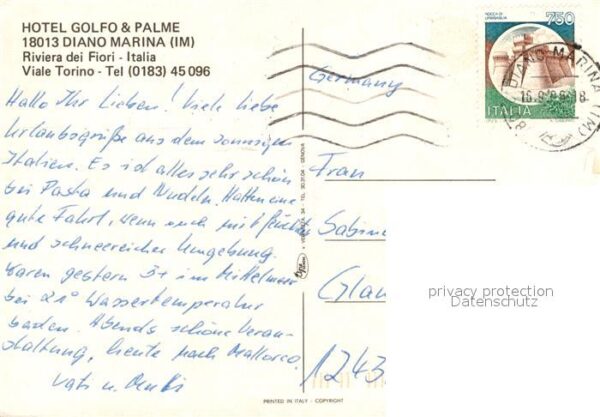 HOTEL GOLFO & PALME
18013 DIANO MARINA (IM)
Riviera dei Fiori - Italia
Viale Torino - Tel (0183) 45096
Hallo Ihr Lieben! Viele liebe
Urlaubsgrüße aus dem sonnigen
Italien. Es ist alles sehr schön
bei Pasta und Nudeln. Hatten eine
gute Fahrt, wenn auch mit
und schneereicher Umgebung.
Waren gestern 3x im Mittelmeer
bei 21° Wassertemperatur
baden. Abends schöne Veran-
staltung, heute nach
Vati u.
Germany
ROCCA DI
URBISAGLIA
750
ITALIA
DIANO MARINA (IM)
Frau
Sabine
Glau
1243
privacy protection
Datenschutz
PRINTED IN ITALY - COPYRIGHT